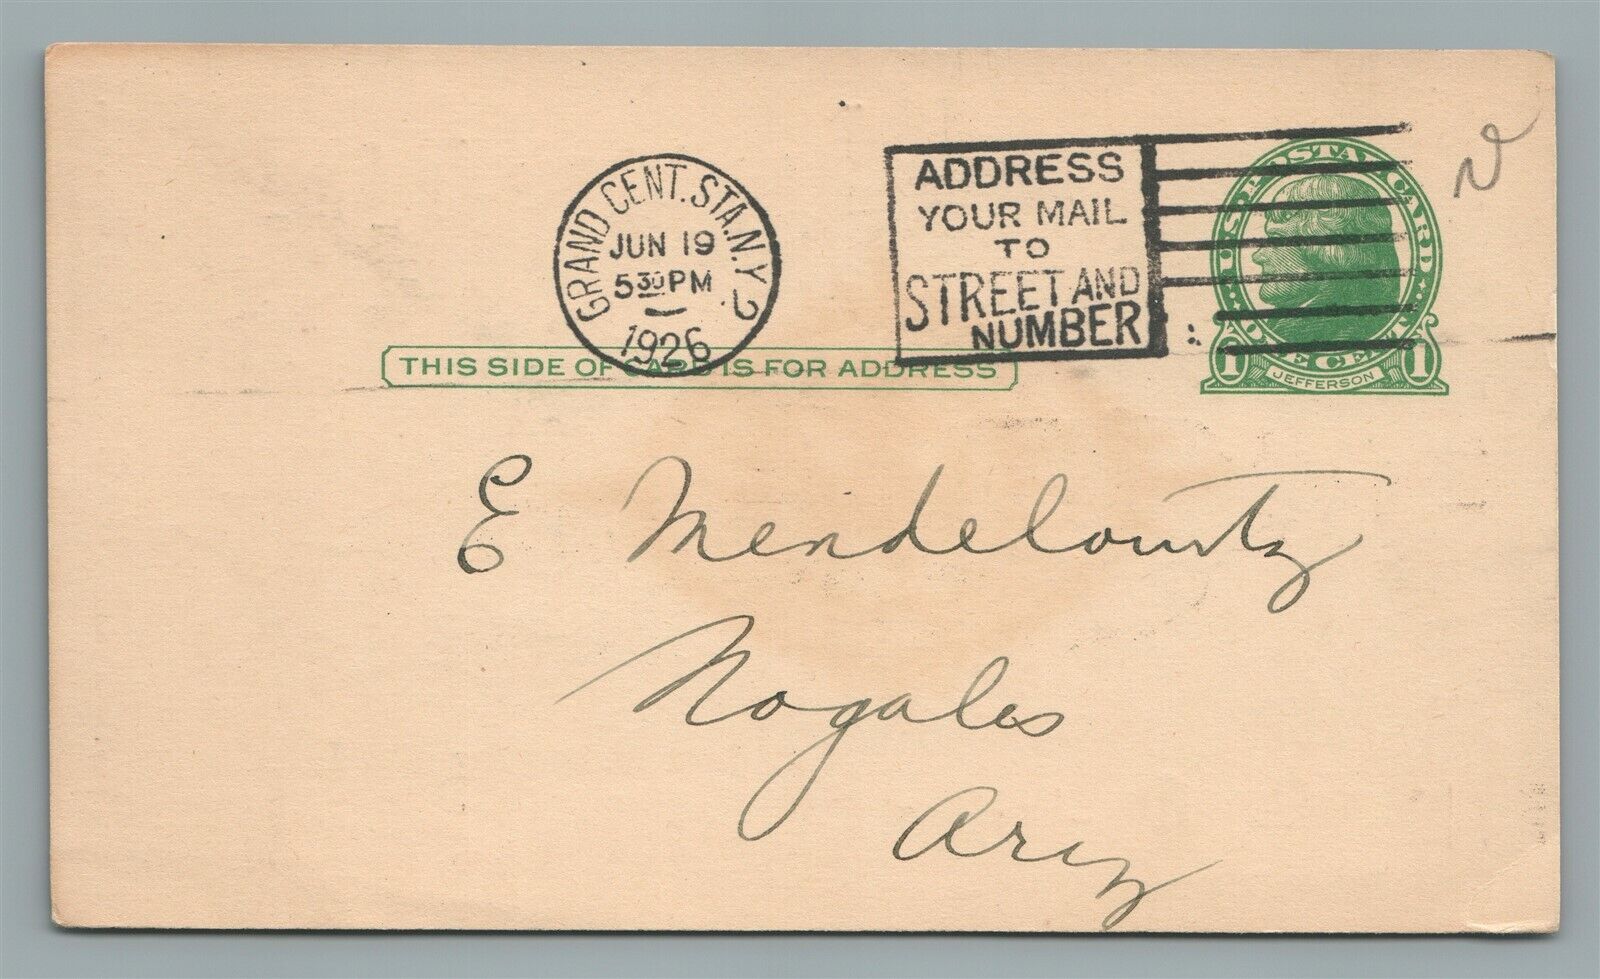 GRAND CENT. STA. N.Y. 2
JUN 19
5 30 PM
1926
ADDRESS
YOUR MAIL
TO
STREET AND
NUMBER
U.S. POSTAL CARD
ONE CENT
1 JEFFERSON 1
THIS SIDE OF CARD IS FOR ADDRESS
E Mendelowitz
Nogales
Ariz